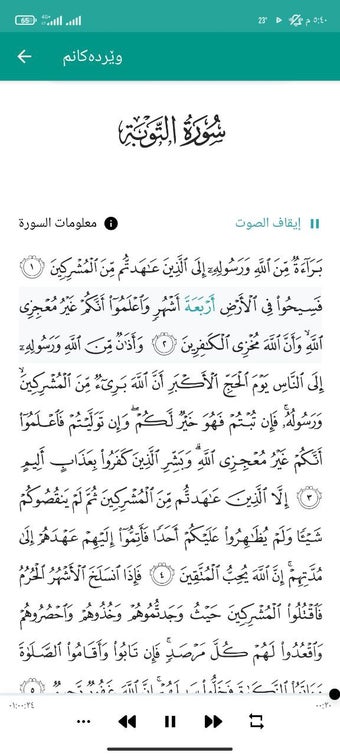 65
23° ٥:٤٠ م
وێردەکانم
سُورَةُ التَّوْبَةِ
إيقاف الصوت
معلومات السورة
بَرَآءَةٌ مِّنَ ٱللَّهِ وَرَسُولِهِۦٓ إِلَى ٱلَّذِينَ عَٰهَدتُّم مِّنَ ٱلْمُشْرِكِينَ ١
فَسِيحُوا۟ فِى ٱلْأَرْضِ أَرْبَعَةَ أَشْهُرٍ وَٱعْلَمُوٓا۟ أَنَّكُمْ غَيْرُ مُعْجِزِى
ٱللَّهِ ۙ وَأَنَّ ٱللَّهَ مُخْزِى ٱلْكَٰفِرِينَ ٢ وَأَذَٰنٌ مِّنَ ٱللَّهِ وَرَسُولِهِۦٓ
إِلَى ٱلنَّاسِ يَوْمَ ٱلْحَجِّ ٱلْأَكْبَرِ أَنَّ ٱللَّهَ بَرِىٓءٌ مِّنَ ٱلْمُشْرِكِينَ ۙ
وَرَسُولُهُۥ ۚ فَإِن تُبْتُمْ فَهُوَ خَيْرٌ لَّكُمْ ۖ وَإِن تَوَلَّيْتُمْ فَٱعْلَمُوٓا۟
أَنَّكُمْ غَيْرُ مُعْجِزِى ٱللَّهِ ۗ وَبَشِّرِ ٱلَّذِينَ كَفَرُوا۟ بِعَذَابٍ أَلِيمٍ
٣ إِلَّا ٱلَّذِينَ عَٰهَدتُّم مِّنَ ٱلْمُشْرِكِينَ ثُمَّ لَمْ يَنقُصُوكُمْ
شَيْـًٔا وَلَمْ يُظَٰهِرُوا۟ عَلَيْكُمْ أَحَدًا فَأَتِمُّوٓا۟ إِلَيْهِمْ عَهْدَهُمْ إِلَىٰ
مُدَّتِهِمْ ۚ إِنَّ ٱللَّهَ يُحِبُّ ٱلْمُتَّقِينَ ٤ فَإِذَا ٱنسَلَخَ ٱلْأَشْهُرُ ٱلْحُرُمُ
فَٱقْتُلُوا۟ ٱلْمُشْرِكِينَ حَيْثُ وَجَدتُّمُوهُمْ وَخُذُوهُمْ وَٱحْصُرُوهُمْ
وَٱقْعُدُوا۟ لَهُمْ كُلَّ مَرْصَدٍ ۚ فَإِن تَابُوا۟ وَأَقَامُوا۟ ٱلصَّلَوٰةَ
وَءَاتَوُا۟ ٱلزَّكَوٰةَ فَخَلُّوا۟ سَبِيلَهُمْ ۚ إِنَّ ٱللَّهَ غَفُورٌ رَّحِيمٌ ٥
٠١:٠٠:٢٤
٠٠:٢٠